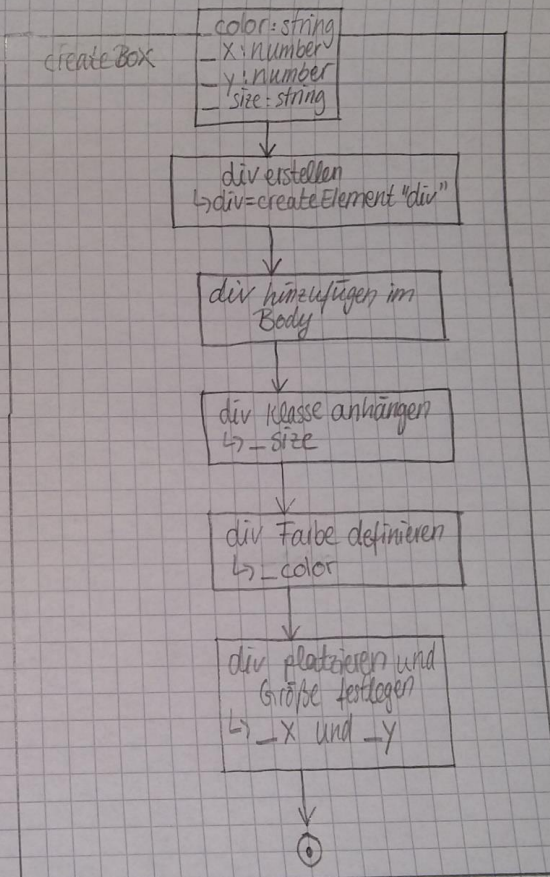 createBox
_color:string
_x:number
_y:number
_size:string
div erstellen
↳div=createElement "div"
div hinzufügen im
Body
div Klasse anhängen
↳_size
div Farbe definieren
↳_color
div platzieren und
Größe festlegen
↳_x und _y